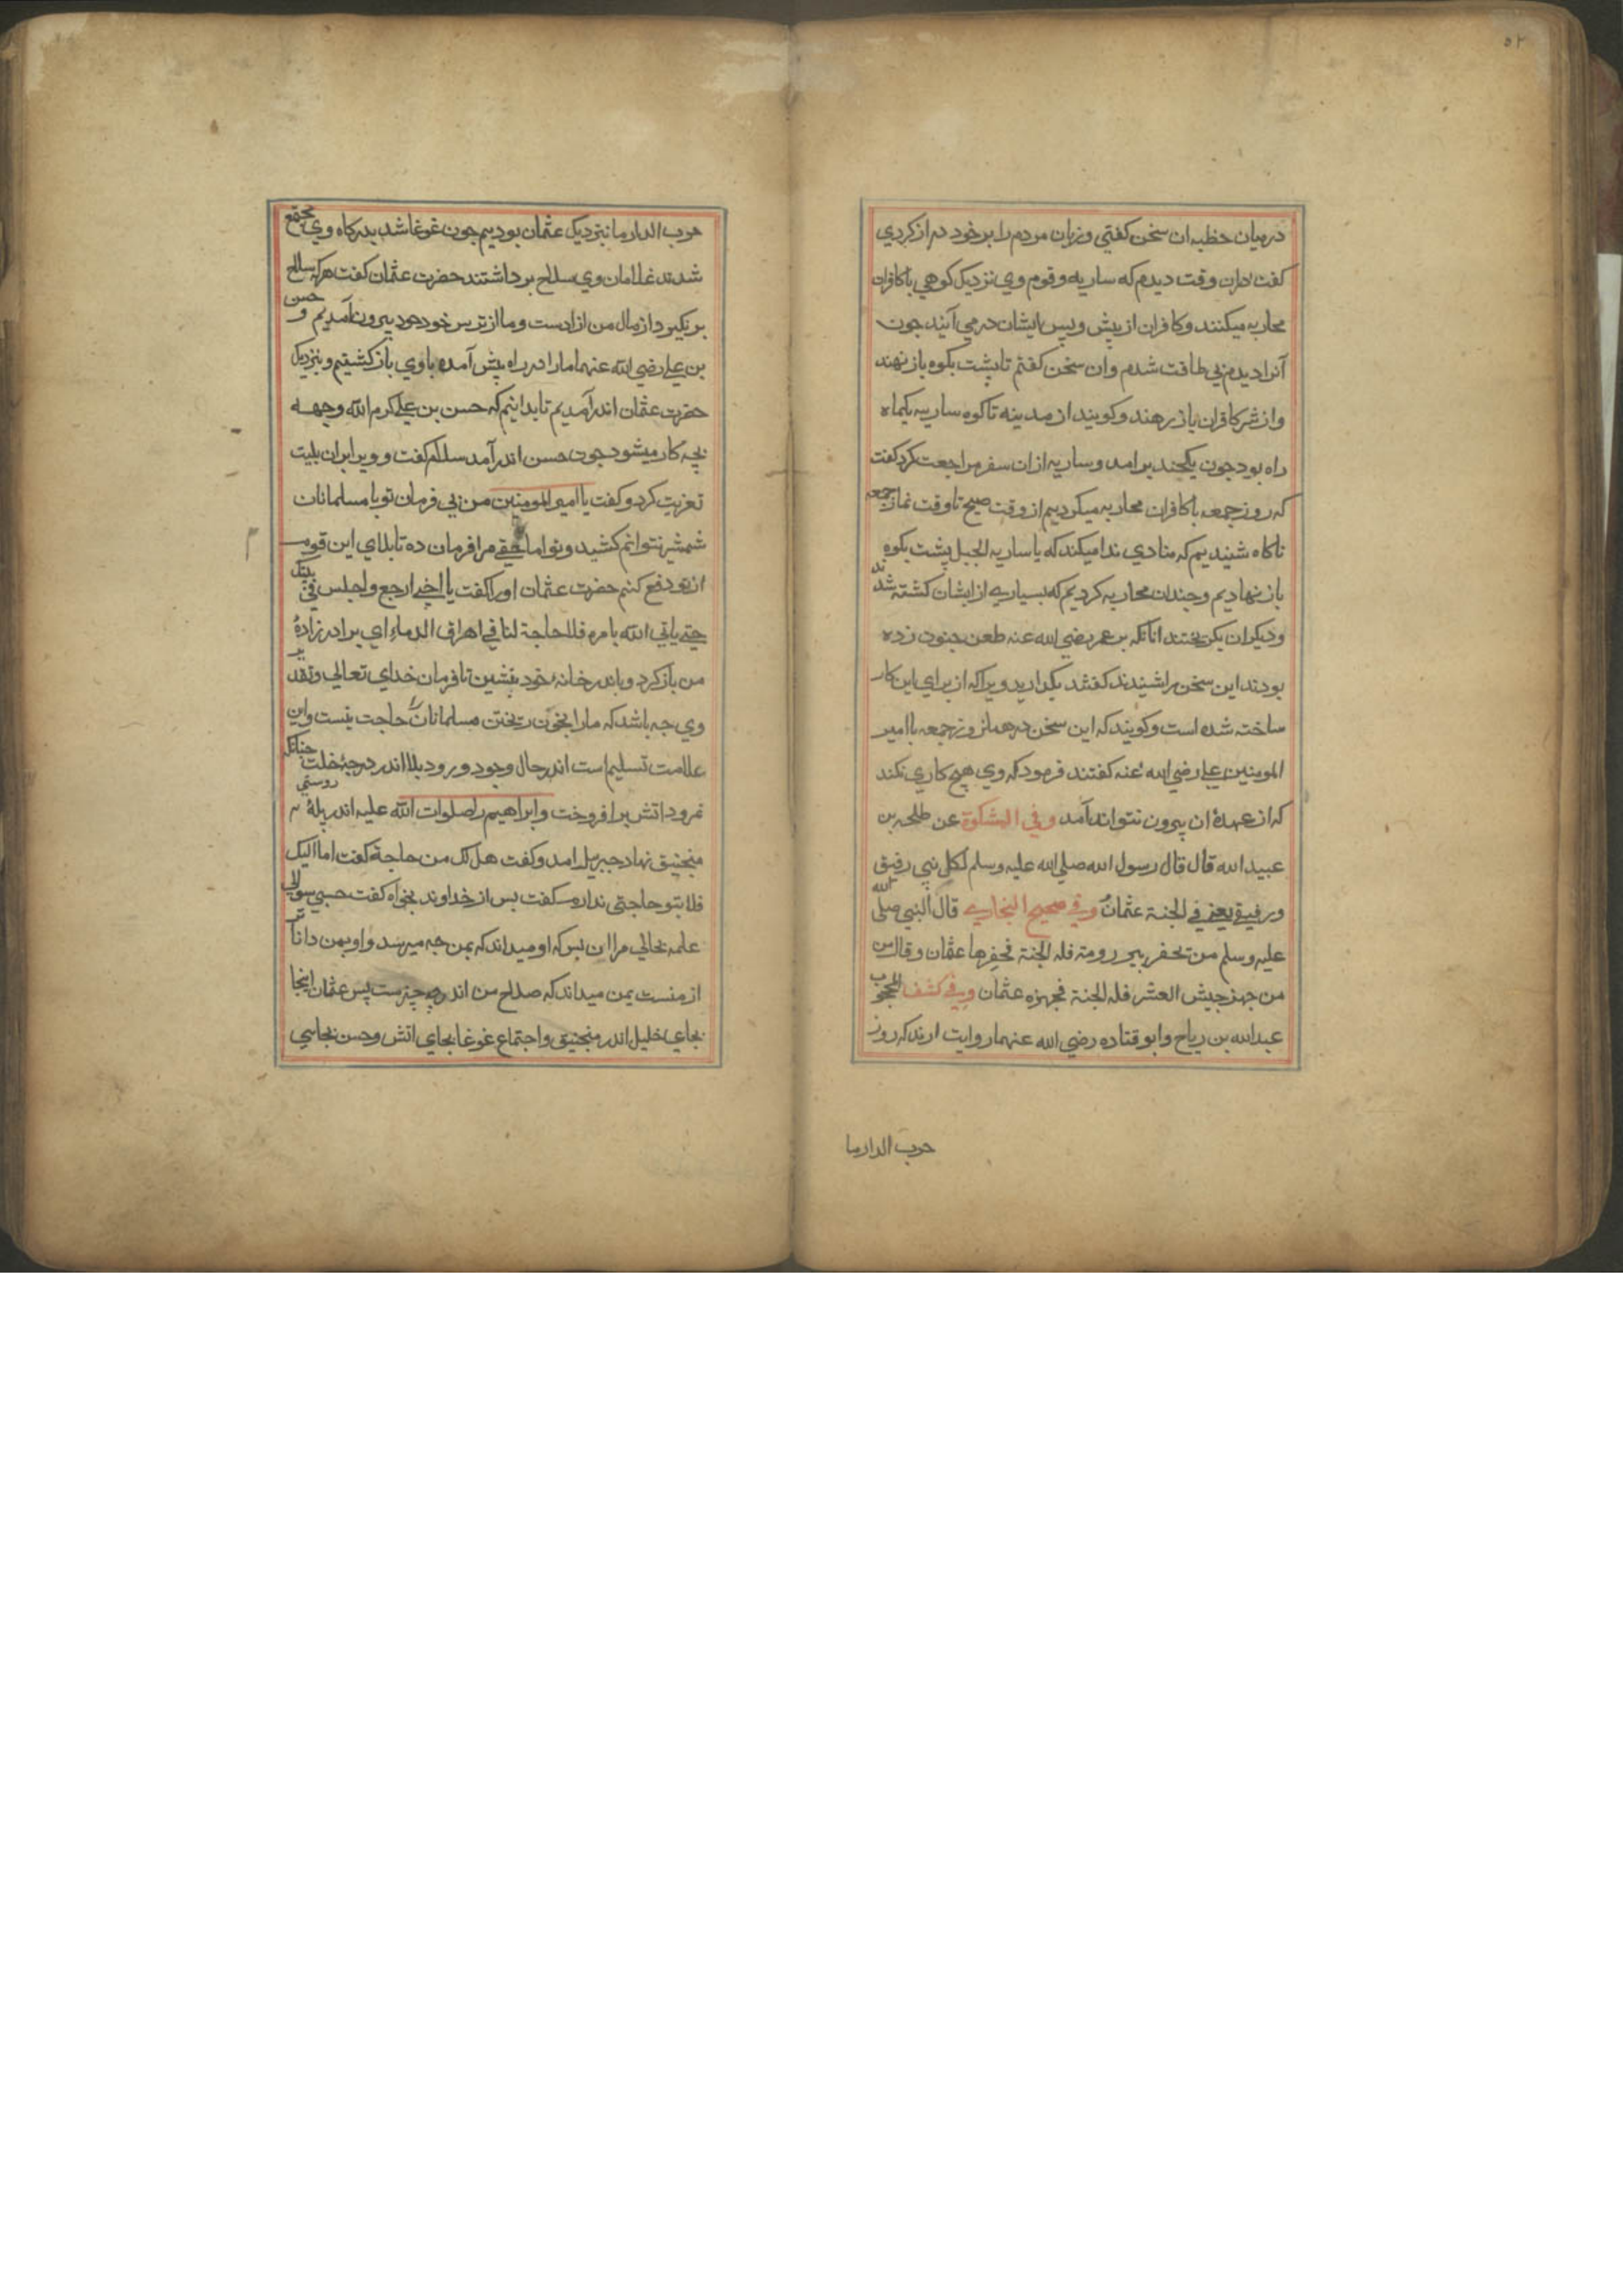 ۵۲
درمیان خطبه ان سخن کفتی وزبان مردم را بر خود دراز کردی
کفت دران وقت دیدم که ساریه وقوم وی نزدیک کوهی باکافران
محاربه میکنند وکافران از پیش وپس ایشان درمی آیند جون
آنرا دیدم بی طاقت شدم وان سخن کفتم تا پشت بکوه باز نهند
واز شر کافران باز رهند وکویند از مدینه تا کوه ساریه یکماه
راه بود جون یکجند برامد وساریه ازان سفر مراجعت کرد کفت
که روز جمعه باکافران محاربه میکردیم از وقت صبح تا وقت نماز جمعه
ناکاه شنیدیم که منادی ندا میکند که یا ساریه الجبل پشت بکوه
باز نهادیم وجندان محاربه کردیم که بسیاری از ایشان کشته شدند
ودیکران بکریختند انانکه بر عمر رضی الله عنه طعن جنون زده
بودند این سخن را شنیدند کفتند بکذارید ویرا که از برای این کار
ساخته شده است وکویند که این سخن در همان روز جمعه با امیر
المومنین علی رضی الله عنه کفتند فرمود که وی هیچ کاری نکند
که از عهدهٔ ان بیرون نتواند آمد وفی المشکوة عن طلحه بن
عبید الله قال قال رسول الله صلی الله علیه وسلم لکل نبی رفیق
ورفیقی یعنی فی الجنة عثمان وفی صحیح البخاری قال النبی صلی الله
علیه وسلم من یحفر بیر رومة فله الجنة فحفرها عثمان وقال من
من جهز جیش العسر فله الجنة فجهزه عثمان وفی کشف المحجوب
عبد الله بن ریاح وابو قتاده رضی الله عنهما روایت ارند که روز
حرب الدار ما
حرب الدار ما بنزدیک عثمان بودیم جون غوغا شد بدرکاه وی مجتمع
شدند غلامان وی سلاح برداشتند حضرت عثمان کفت هرکه سلاح
بر نکیرد از مال من ازادست وما از ترس خود بیرون آمدیم و حسن
بن علی رضی الله عنهما ما را در راه پیش آمد باوی باز کشتیم وبنزدیک
حضرت عثمان اندر آمدیم تا بدانیم که حسن بن علی کرم الله وجهه
بجه کار میشود جون حسن اندر آمد سلام کفت و ویرا بران بلیت
تعزیت کرد وکفت یا امیر المومنین من بی فرمان تو با مسلمانان
شمشیر نتوانم کشید وتو امام حقی مرا فرمان ده تا بلای این قوم
از تو دفع کنم حضرت عثمان اورا کفت یا ابن اخی ارجع واجلس فی بیتک
حتی یاتی الله بامره فلا حاجة لنا فی اهراق الدماء ای برادر زادهٔ
من باز کرد وباندر خانهٔ خود بنشین تا فرمان خدای تعالی وتقدیر
وی جه باشد که مارا بخون ریختن مسلمانان حاجت نیست واین
علامت تسلیم است اندر حال وجود ورود بلا اندر درجهٔ خلت جنانکه
نمرود اتش برافروخت وابراهیم را صلوات الله علیه اندر پلهٔ
منجنیق نهاد جبریل امد وکفت هل لک من حاجة کفت اما الیک
فلا بتو حاجتی ندارم کفت بس از خداوند بخواه کفت حسبی سوالی
علمه بحالی مرا ان بس که او میداند که بمن جه میرسد واو بمن داناتر
از منست بمن میداند که صلاح من اندر چه چیزست پس عثمان اینجا
بجای خلیل اندر منجنیق واجتماع غوغا بجای اتش وحسن بجای